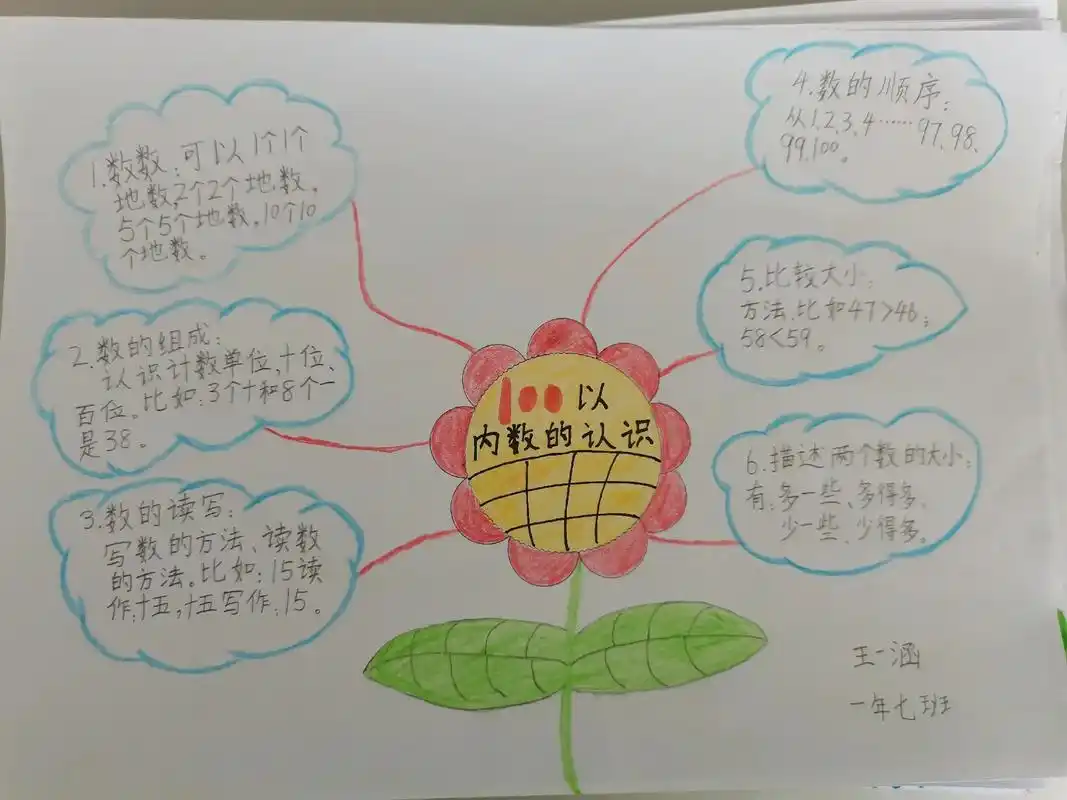 100以
内数的认识
1.数数:可以1个1个
地数,2个2个地数,
5个5个地数,10个10
个地数。
2.数的组成:
认识计数单位,十位、
百位。比如:3个十和8个一
是38。
3.数的读写:
写数的方法、读数
的方法。比如:15读
作:十五,十五写作:15。
4.数的顺序:
从1,2,3,4……97,98,
99,100。
5.比较大小:
方法.比如47>46;
58<59。
6.描述两个数的大小:
有:多一些、多得多、
少一些、少得多。
王一涵
一年七班